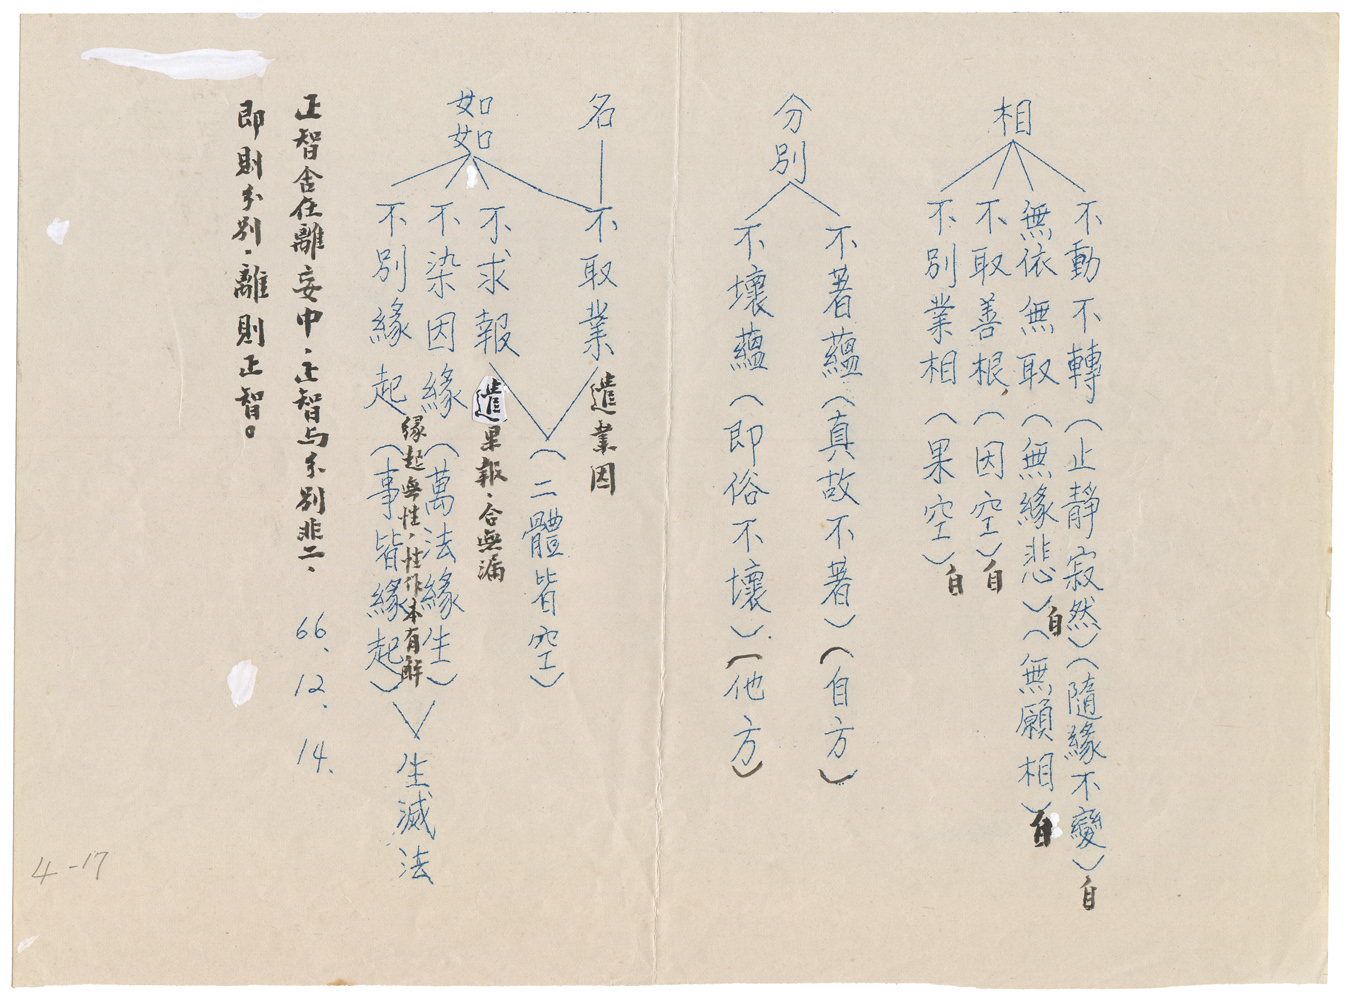 相
不動不轉(止靜寂然)(隨緣不變)自
無依無取(無緣悲)自(無願相)自
不取善根、(因空)自
不別業相(果空)自
分別
不著蘊(真故不著)(自方)
不壞蘊(即俗不壞)(他方)
名
不取業 遣業因
如如
不求報 遣果報、合無漏
(二體皆空)
不染因緣(萬法緣生)
緣起無性、性作本有解
不別緣起(事皆緣起)
生滅法
正智含在離妄中、正智与分別非二、
即則分別、離則正智。
66、12、14、
4-17